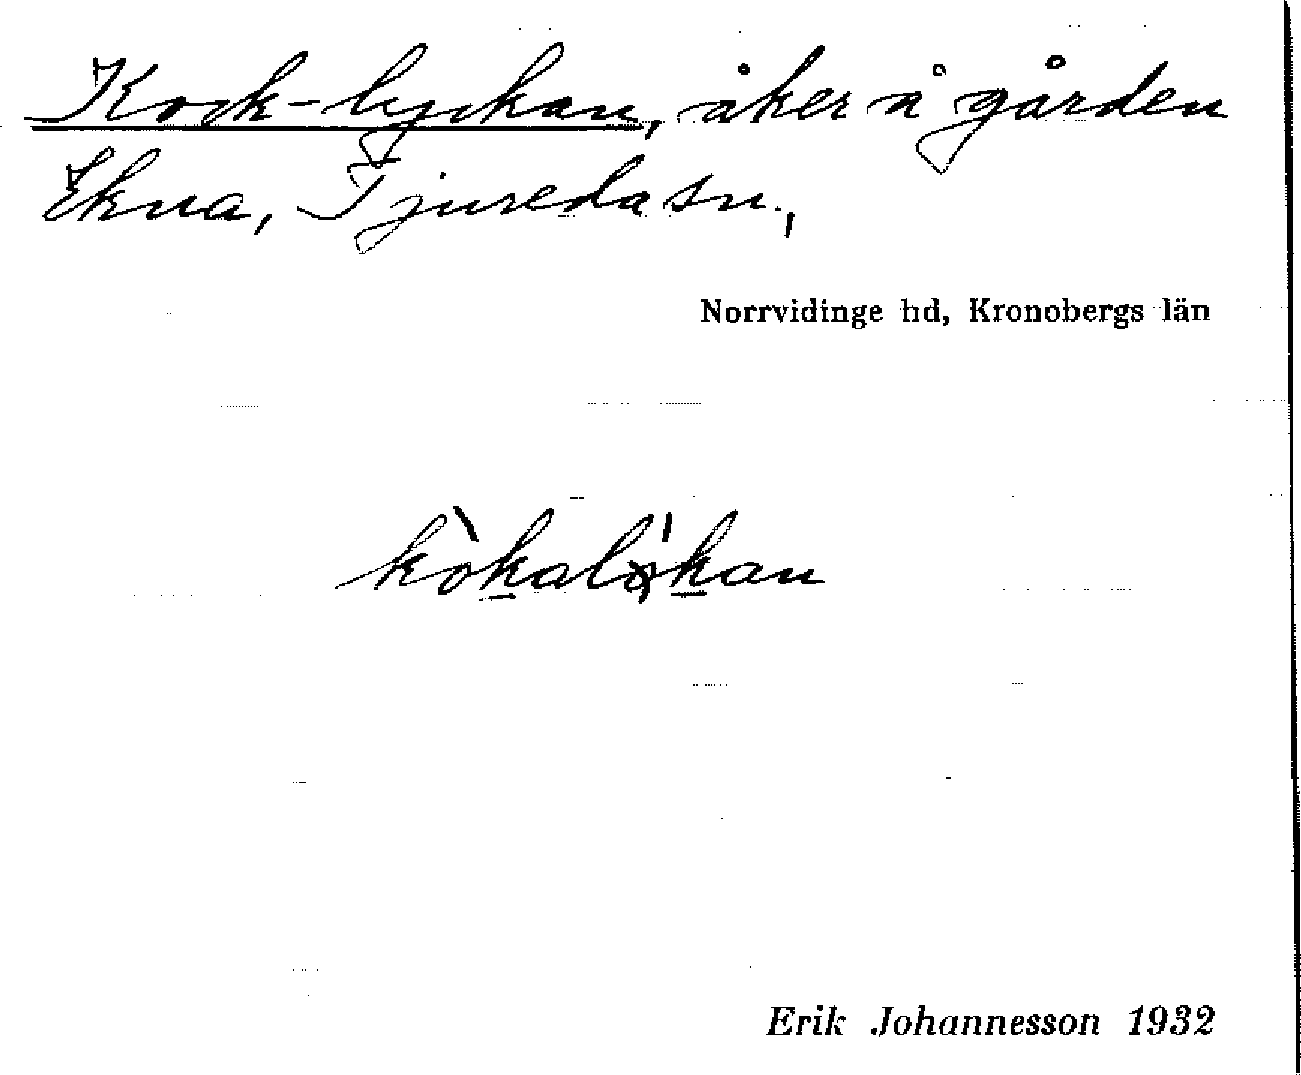 Kock-lyckan, åker å gården
Ekna, Tjureda sn.,
Norrvidinge hd, Kronobergs län
kòkalö́kan
Erik Johannesson 1932